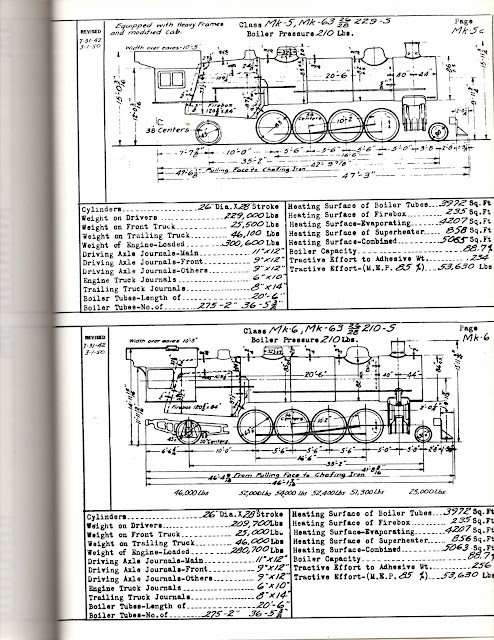 REVISED
7-31-42
3-1-50
Equipped with Heavy Frames
and modified cab.
Class Mk-5, Mk-63 26/28 229-S
Boiler Pressure 210 Lbs.
Page
Mk-5c
Width over eaves-10'-5"
20'-6"
40" 44"
Firebox
120⅛ x 84"
38 Centers
10'-2"
7'-7½" 10'-0" 5'-6" 5'-6" 5'-6" 5'-0" 3'-8
16'-6"
35'-2"
47'-6½" Pulling Face to Chafing Iron
47'-3"
Cylinders 26" Dia. X 28 Stroke
Weight on Drivers 229,000 Lbs
Weight on Front Truck 25,500 Lbs
Weight on Trailing Truck 46,100 Lbs
Weight of Engine-Loaded 300,600 Lbs
Driving Axle Journals-Main 11"x12"
Driving Axle Journals-Front 9"x12"
Driving Axle Journals-Others 9"x12"
Engine Truck Journals 6"x10"
Trailing Truck Journals 8"x14"
Boiler Tubes-Length of 20'-6"
Boiler Tubes-No. of 275-2" 36-5½"
Heating Surface of Boiler Tubes 3972 Sq.Ft
Heating Surface of Firebox 235 Sq.Ft
Heating Surface-Evaporating 4207 Sq.Ft
Heating Surface of Superheater 858 Sq.Ft
Heating Surface-Combined 5065 Sq.Ft
Boiler Capacity 88.7%
Tractive Effort to Adhesive Wt. 234
Tractive Effort-(M.E.P. 85 %) 53,630 Lbs
REVISED
7-31-42
3-1-50
Class Mk-6, Mk-63 26/28 210-S
Boiler Pressure 210 Lbs.
Page
Mk-6
Width over eaves 10'-5"
20'-6"
40" 44"
Firebox 120⅛ x 84"
Centers
6'-6½ 10'-0" 5'-6" 5'-6" 5'-6" 5'-0"
16'-6"
35'-2"
From Pulling Face to Chafing Iron
46,000 Lbs 52,000 Lbs 54,000 Lbs 52,400 Lbs 51,300 Lbs 25,000 Lbs.
Cylinders 26" Dia. X 28 Stroke
Weight on Drivers 209,700 Lbs
Weight on Front Truck 25,000 Lbs.
Weight on Trailing Truck 46,000 Lbs
Weight of Engine-Loaded 280,700 Lbs
Driving Axle Journals-Main 11"x12"
Driving Axle Journals-Front 9"x12"
Driving Axle Journals-Others 9"x12"
Engine Truck Journals 6"x10"
Trailing Truck Journals 8"x14"
Boiler Tubes-Length of 20'-6"
Boiler Tubes-No. of 275-2" 36-5½"
Heating Surface of Boiler Tubes 3972 Sq.Ft
Heating Surface of Firebox 235 Sq.Ft
Heating Surface-Evaporating 4207 Sq.Ft
Heating Surface of Superheater 856 Sq.Ft
Heating Surface-Combined 5063 Sq.Ft
Boiler Capacity 88.7%
Tractive Effort to Adhesive Wt. 256
Tractive Effort-(M.E.P. 85 %) 53,630 Lbs